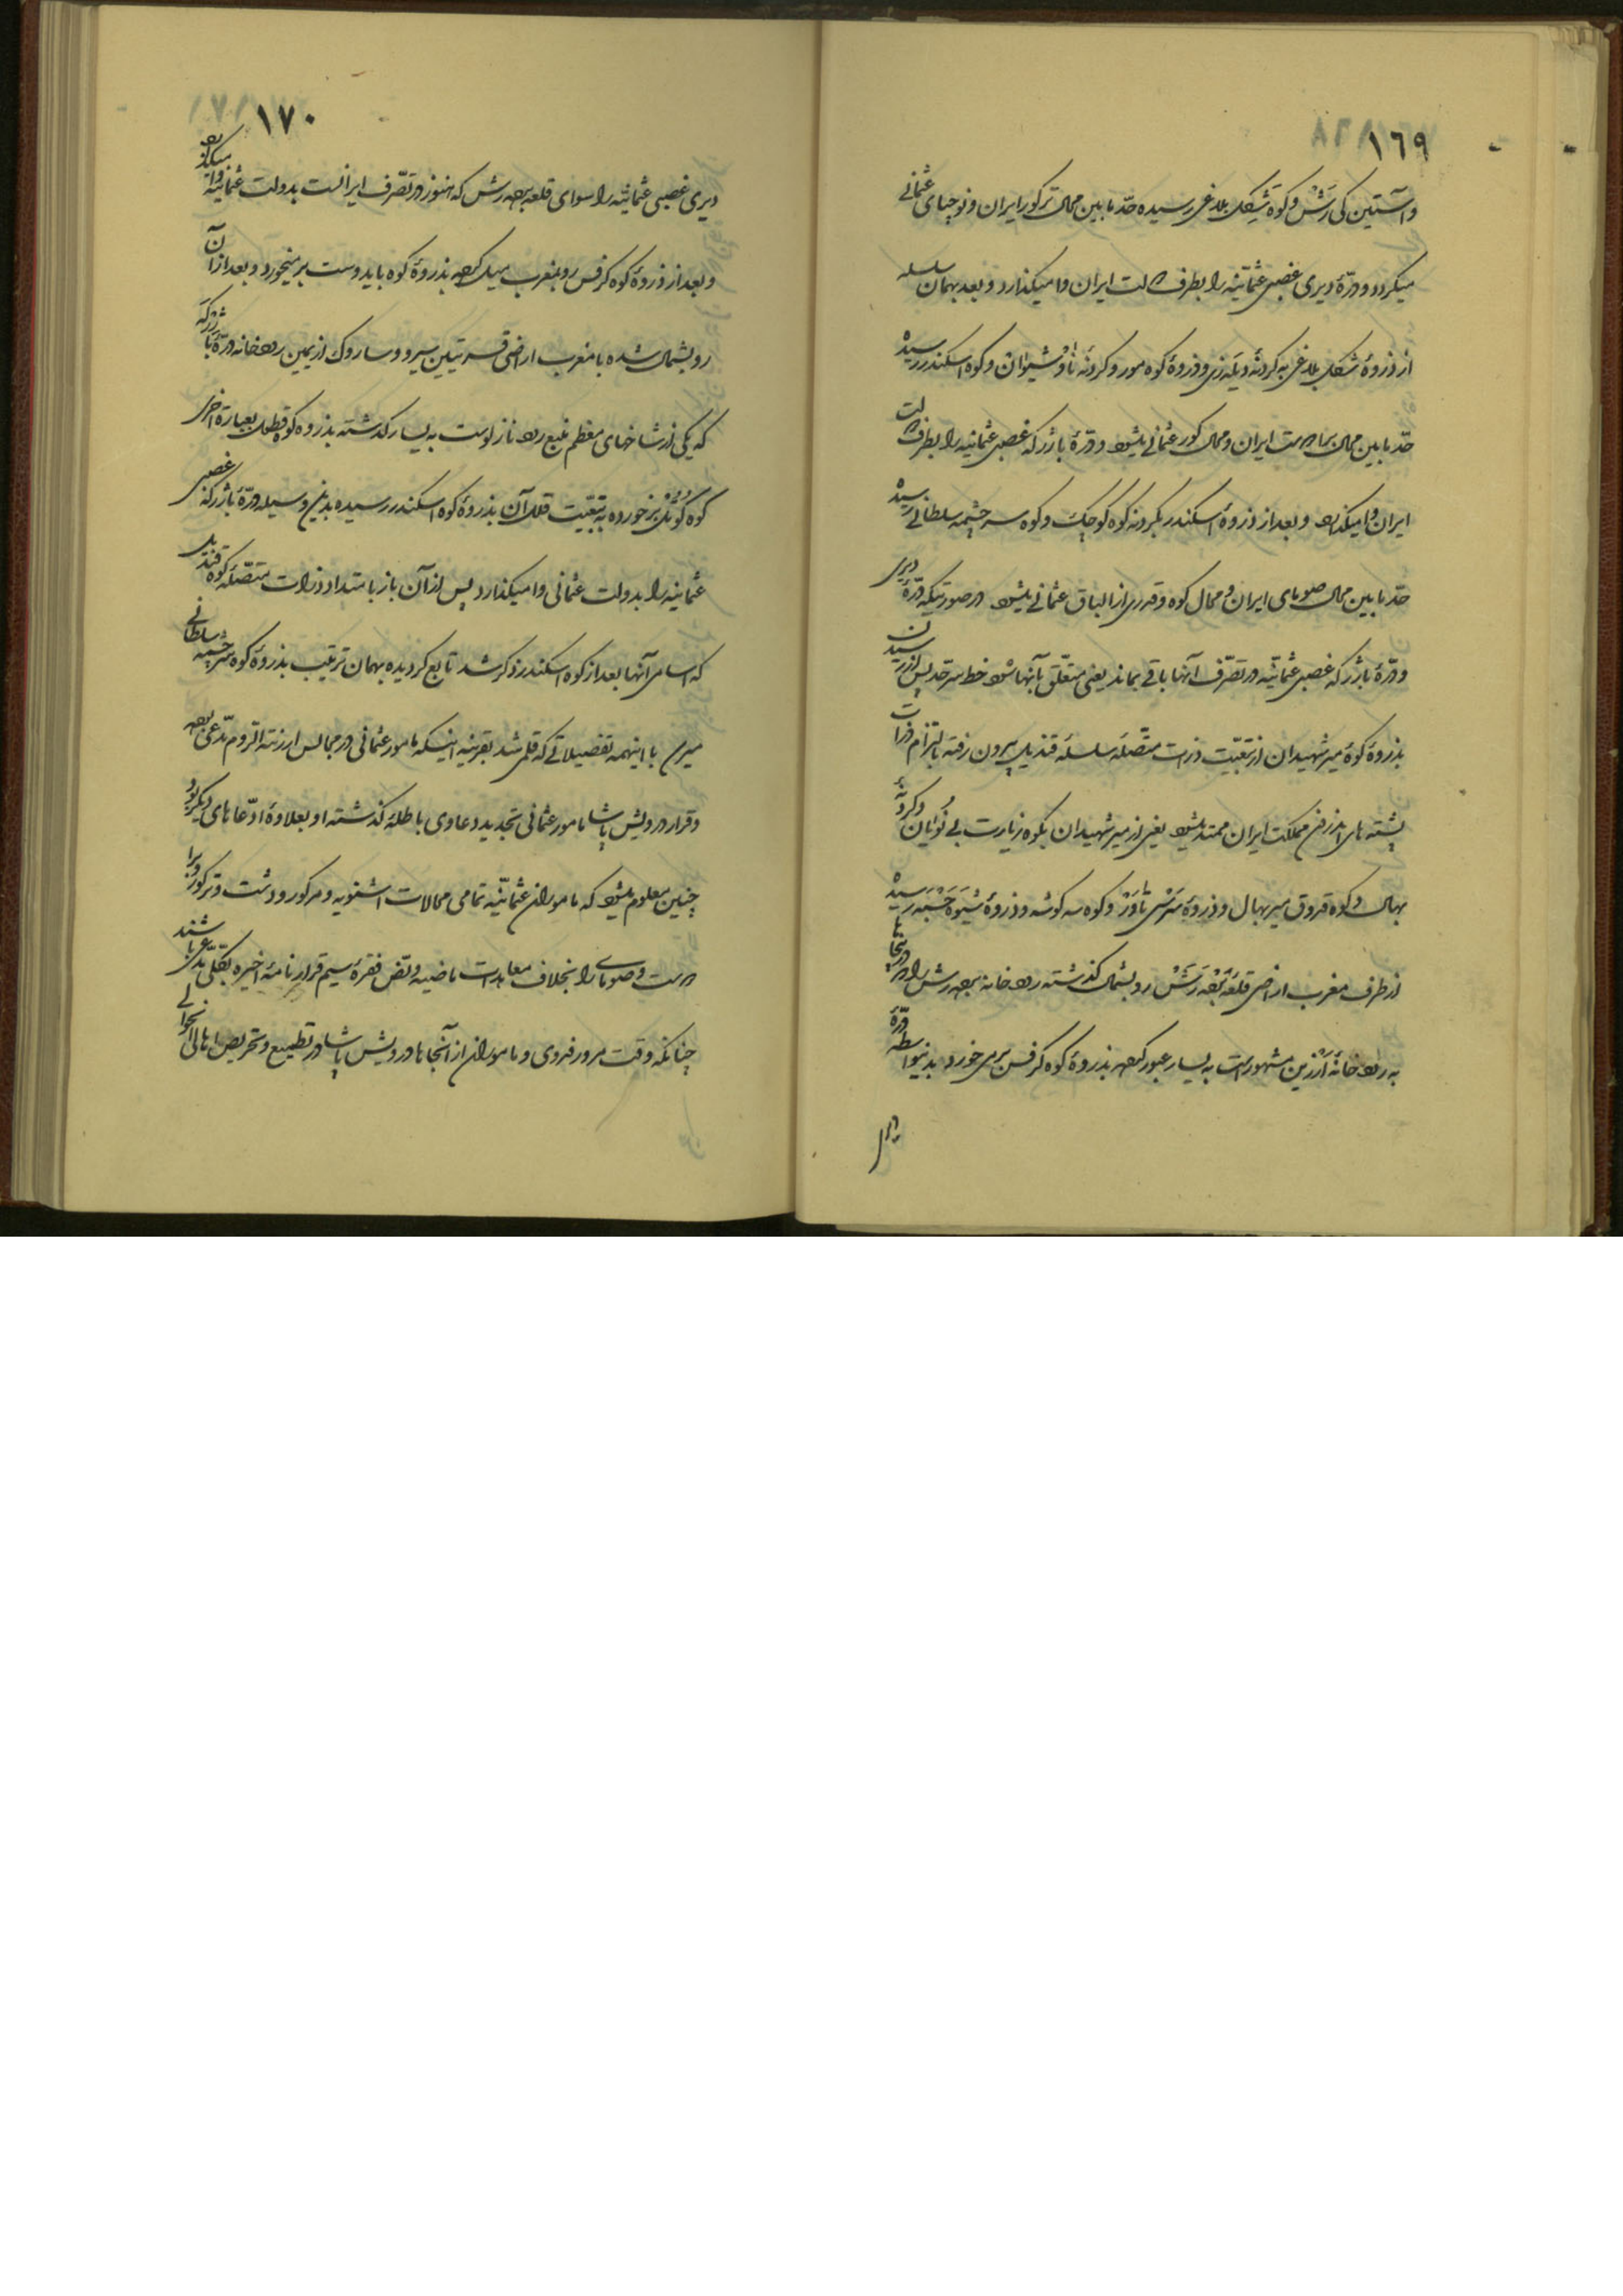 ١٦٩
و آستین کی رَشْ و کوه شَیْکل بلاغی رسیده حدّ مابین محال ترکور ایران و نوچیای عثمانی
میگردد و درّهٔ دیری غصبی عثمانیّه را بطرف دولت ایران وا میگذارد و بعد بهمان سلسله
از ذروهٔ شکل بلاغی به کردنهٔ و ذروهٔ کوه مور و کردنهٔ ناوشیوان و کوه اسکندر رسیده
حدّ مابین محال برادوست ایران و محال کور عثمانی میشود و درّهٔ باژرکه غصبی عثمانیه را بطرف دولت
ایران وا میگذارد و بعد از ذروهٔ اسکندر بکردنه کوه کوچک و کوه سرچشمه سلطانی رسیده
حدّ مابین محال صومای ایران و محال کوه و قدری از الباق عثمانی میشود در صورتیکه درّهٔ دیری
و درّهٔ باژرکه غصبی عثمانیّه در تصرّف آنها باقی بماند یعنی متعلّق بآنها شود خط سرحدّ پس از رسیدن
بذروهٔ کوهٔ میر شهیدان از تبعیّت ذرات متّصلهٔ سلسلهٔ قندیل بیرون رفته بالتزام ذرات
پشته های اندرفی مملکت ایران ممتد میشود یعنی از میر شهیدان بکوه زیارت بی نُوٰیان و کردنهٔ
بهمال و کوه قروق میر بهال و ذروهٔ سَرْسی ناوَرْ و کوه سه کوشه و ذروهٔ شیوه چَبَر رسیده
از طرف مغرب اراضی قلعهٔ بَعه رَشْ رو بشمال گذشته رودخانه بعه رش را که در آنجاها
به رودخانهٔ اَرْزین مشهور است به یسار عبور کرده بذروهٔ کوه کرفس برمی خورد بدینواسطه درّهٔ
١٧٠
دیری غصبی عثمانیّه را سوای قلعه بعه رش که هنوز در تصّرف ایرانست بدولت عثمانیّه وا میگذارد
و بعد از ذروهٔ کوه کرفس رو بمغرب میل کرده بذروهٔ کوه بایدوست بر میخورد و بعد از آن
رو بشمال شده با مغرب اراضی قریتین سیرو و ساروک از یمین رودخانه درّهٔ باژرگه
که یکی از شاخهای معظم منبع رود نازلوست به یسار گذشته بذروه کوه قطول بعبارة اخری
کوه کُوتُل بر خورده به تبعیّت قلل آن بذروهٔ کوه اسکندر رسیده بدین وسیله درّهٔ باژرکهٔ غصبی
عثمانیه را بدولت عثمانی وا میگذارد پس از آن باز بامتداد ذرات متّصلهٔ کوه قندیل
که اسامی آنها بعد از کوه اسکندر ذکر شد تابع گردیده بهمان ترتیب بذروهٔ کوه سرچشمه سلطانی
میرسد با اینهمه تفضیلاتی که قلمی شد بقرینه اینکه مامور عثمانی در مجالس ارزنة الروم مدّعی بوده
و قرار درویش پاشا مامور عثمانی تجدید دعاوی باطلهٔ گذشته او بعلاوهٔ ادّعاهای دیگر بود
چنین معلوم میشود که ماموران عثمانیّه تمامی محالات اشنویه و مرکور و دشت و ترکور و برا
دوست و صومای را بخلاف معاهدات ماضیه و نصّ فقرهٔ سیم قرارنامهٔ اخیره بکلّی مدّعی باشند
چنانکه وقت مرور فدوی و ماموران از آنجاها درویش پاشا در تطمیع و تحریص اهالی آنحوالی